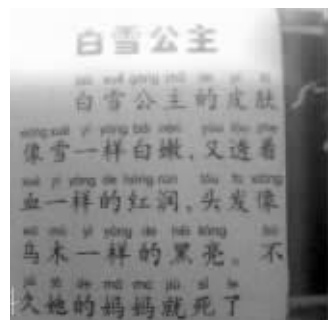 白雪公主
bái xuě gōng zhǔ de pí fū
白雪公主的皮肤
xiàng xuě yí yàng bái nèn yòu tòu zhe
像雪一样白嫩，又透着
xuè yí yàng de hóng rùn tóu fa xiàng
血一样的红润，头发像
wū mù yí yàng de hēi liàng bù
乌木一样的黑亮。不
jiǔ tā de mā ma jiù sǐ le
久她的妈妈就死了